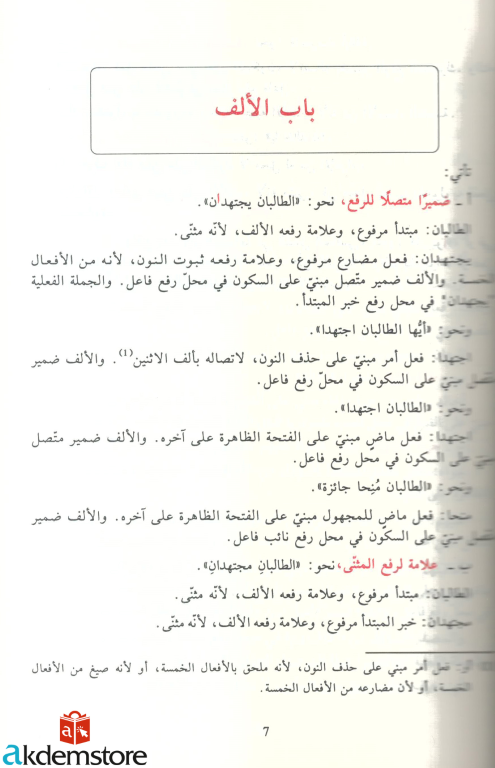 باب الألف
تأتي:
أ ـ ضميرًا متصلًا للرفع، نحو: «الطالبان يجتهدان».
الطالبان: مبتدأ مرفوع، وعلامة رفعه الألف، لأنّه مثنّى.
يجتهدان: فعل مضارع مرفوع، وعلامة رفعه ثبوت النون، لأنه من الأفعال
الخمسة. والألف ضمير متّصل مبنيّ على السكون في محلّ رفع فاعل. والجملة الفعلية
"يجتهدان" في محل رفع خبر المبتدأ.
ونحو: «أيُّها الطالبان اجتهدا».
اجتهدا: فعل أمر مبنيّ على حذف النون، لاتصاله بألف الاثنين(1). والألف ضمير
متصل مبنيّ على السكون في محلّ رفع فاعل.
ونحو: «الطالبان اجتهدا».
اجتهدا: فعل ماضٍ مبنيّ على الفتحة الظاهرة على آخره. والألف ضمير متّصل
مبنيّ على السكون في محلّ رفع فاعل.
ونحو: «الطالبان مُنِحا جائزة».
منحا: فعل ماضٍ للمجهول مبنيّ على الفتحة الظاهرة على آخره. والألف ضمير
متصل مبنيّ على السكون في محل رفع نائب فاعل.
ب ـ علامة لرفع المثنّى، نحو: «الطالبانِ مجتهدانِ».
الطالبان: مبتدأ مرفوع، وعلامة رفعه الألف، لأنّه مثنّى.
مجتهدان: خبر المبتدأ مرفوع، وعلامة رفعه الألف، لأنّه مثنّى.
(1) أو: فعل أمر مبني على حذف النون، لأنه ملحق بالأفعال الخمسة، أو لأنه صيغ من الأفعال
الخمسة، أو لأن مضارعه من الأفعال الخمسة.
7
a
akdemstore